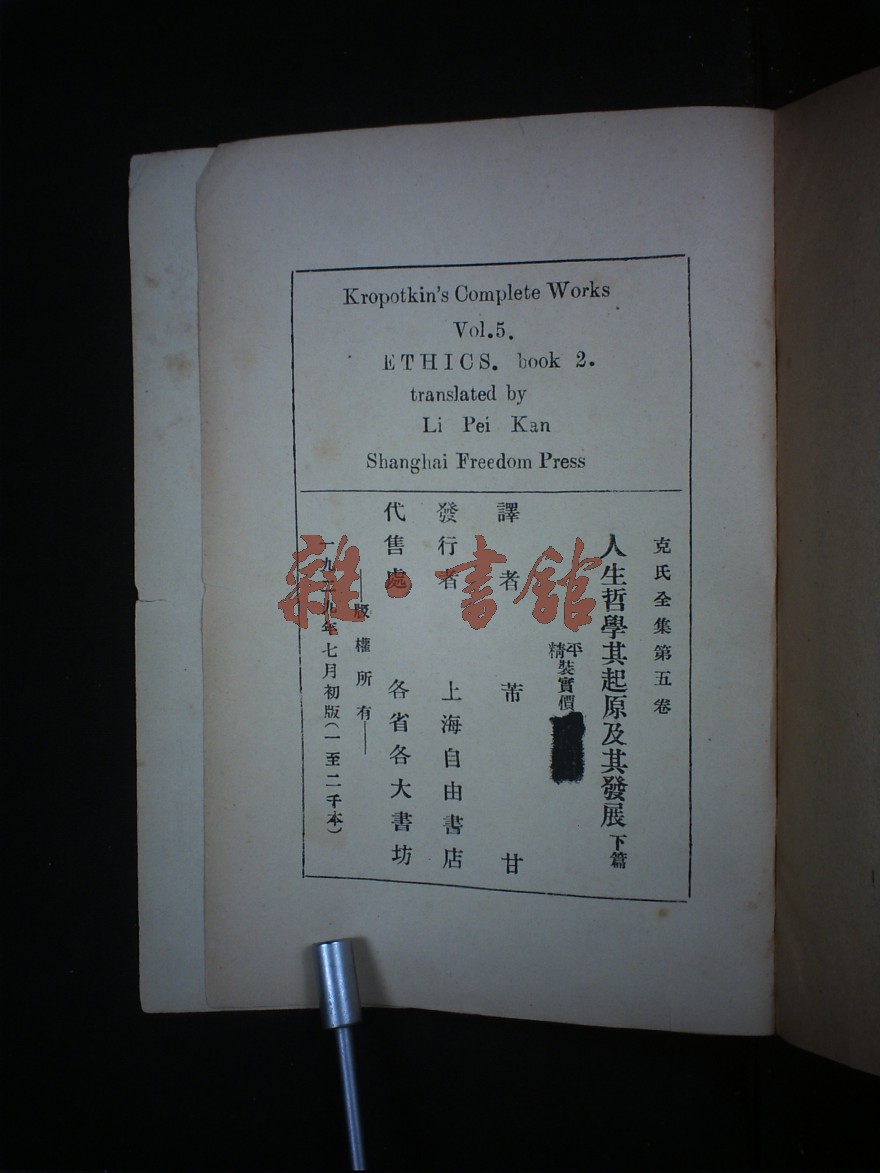 Kropotkin's Complete Works
Vol.5.
ETHICS. book 2.
translated by
Li Pei Kan
Shanghai Freedom Press
克氏全集第五卷
人生哲學其起原及其發展 下篇
平精裝實價
譯者 芾甘
發行者 上海自由書店
代售處 各省各大書坊
——版權所有——
一九二九年七月初版(一至二千本)
雜·書館